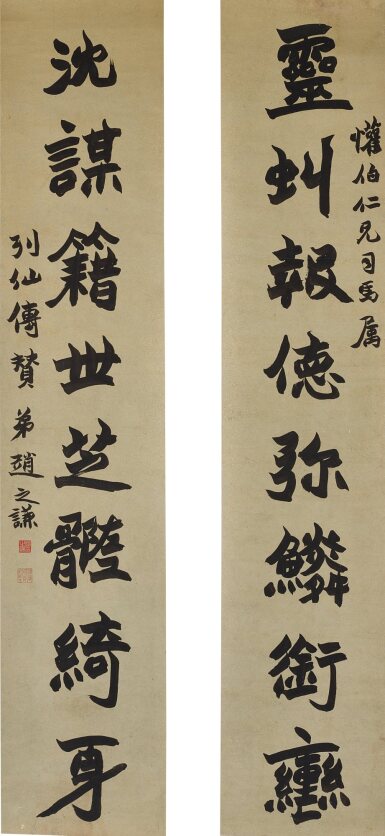 懽伯仁兄司馬属
靈虯報徳弥鱗銜轡
沈謀籍世芝體綺身
列仙傳贊 弟趙之謙